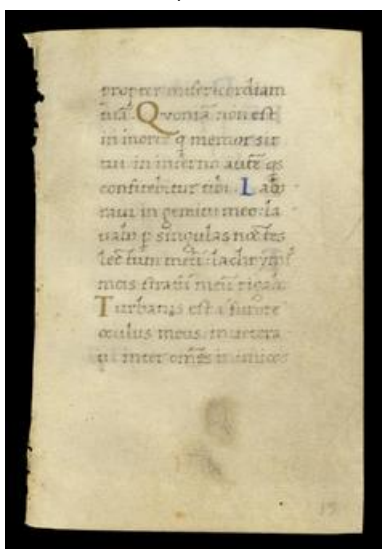 propter misericordiam
tuã. Quoniã non est
in morte q memor sit
tui in inferno autẽ qs
confitebitur tibi. Lab
raui in gemitu meo la
uabo p singulas noctes
lectum meũ: lachrymi
meis stratũ meũ rigabo
Turbatus est a furore
oculus meus: inuetera
ui inter omẽs inimicos